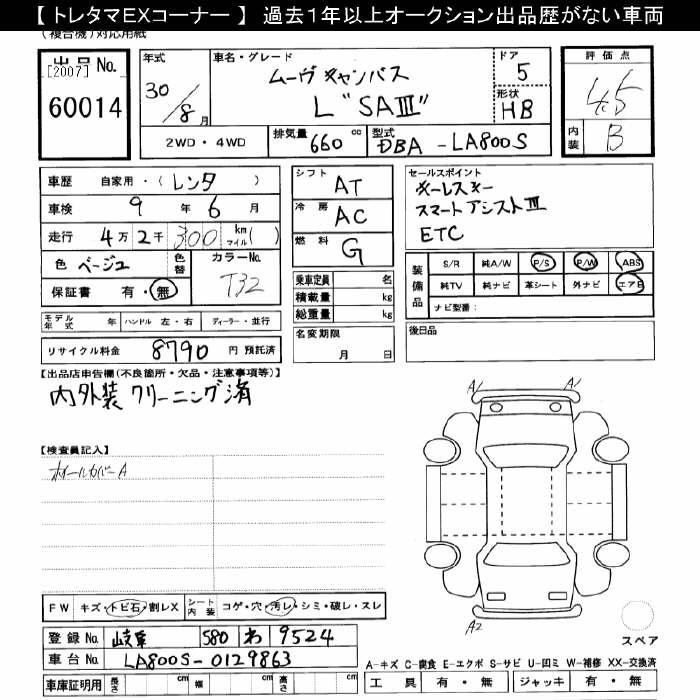 【 トレタマEXコーナー 】 過去1年以上オークション出品歴がない車両
(複合機)対応用紙
出品 No.
[2007]
60014
年式
30/8月
車名・グレード
ムーヴ キャンバス
L "SAIII"
ドア
5
形状
HB
評価点
4.5
内装
B
2WD・4WD
排気量 660 cc
型式 DBA - LA800S
車歴 自家用・( レンタ )
車検 9 年 6 月
走行 4万 2千 300 km マイル( )
色 ベージュ
色替
カラーNo.
T32
保証書 有・無
モデル年式 年 ハンドル 左・右 ディーラー・並行
リサイクル料金 8790 円 預託済
シフト AT
冷房 AC
燃料 G
乗車定員 名
積載量 kg
総重量 kg
名変期限
月 日
セールスポイント
キーレスキー
スマートアシストIII
ETC
装備品
S/R 純A/W P/S P/W ABS
純TV 純ナビ 革シート 外ナビ エアB
ナビ型番:
後日品
【出品店申告欄(不良箇所・欠品・注意事項等)】
内外装 クリーニング済
【検査員記入】
ホイールカバーA
A1 A1
A2
スペア
FW キズ・トビ石・割レX シート内装 コゲ・穴・汚レ・シミ・破レ・スレ
登録 No. 岐阜 580 わ 9524
車台 No. LA800S-0129863
車庫証明用 長さ cm 幅 cm 高さ cm
A-キズ C-腐食 E-エクボ S-サビ U-凹ミ W-補修 XX-交換済
工具 有・無 ジャッキ 有・無